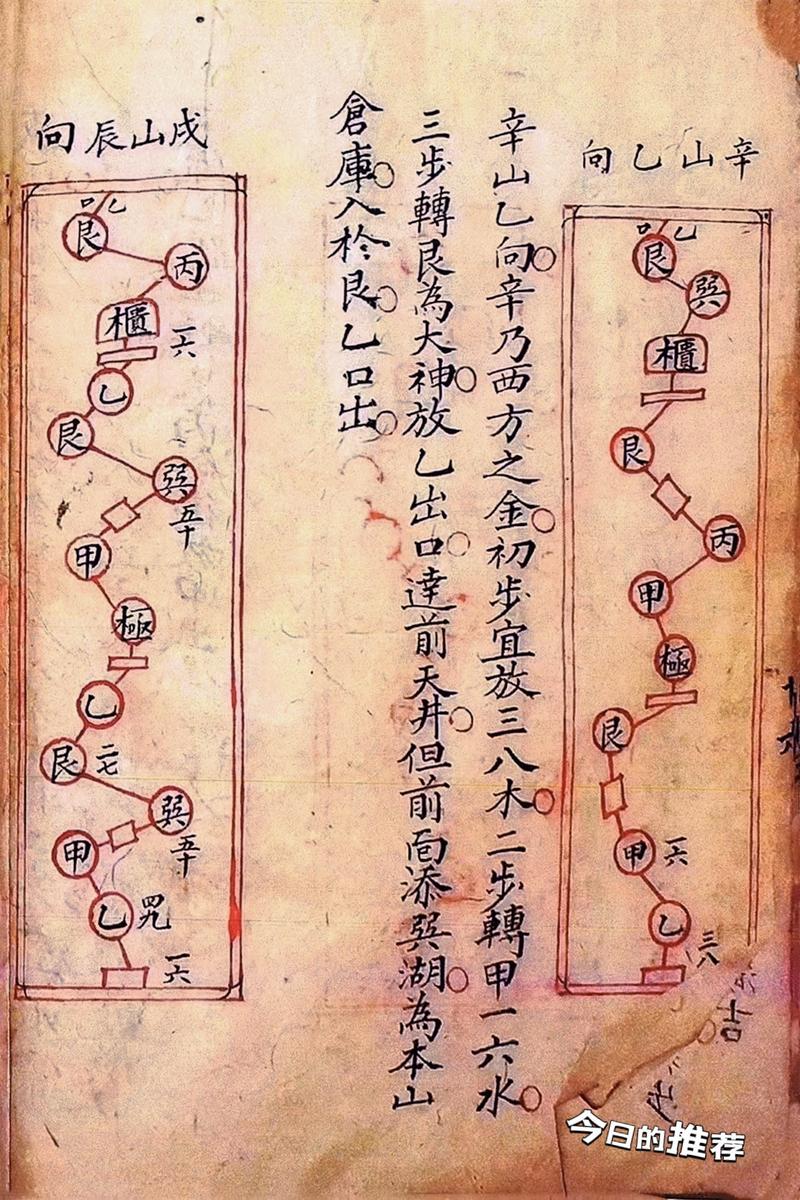 辛山乙向
口乙
艮
巽
櫃
艮
丙
甲
極
艮
甲
一六
乙
三八
辛山乙向辛乃西方之金初步宜放三八木二步轉甲一六水
三步轉艮為大神放乙出口達前天井但前面添巽湖為本山
倉庫入於艮乙口出
戌山辰向
口乙
艮
丙
櫃
一六
乙
艮
巽
五十
甲
極
乙
艮
二七
巽
五十
甲
乙
四九
一六
吉
今日的推荐